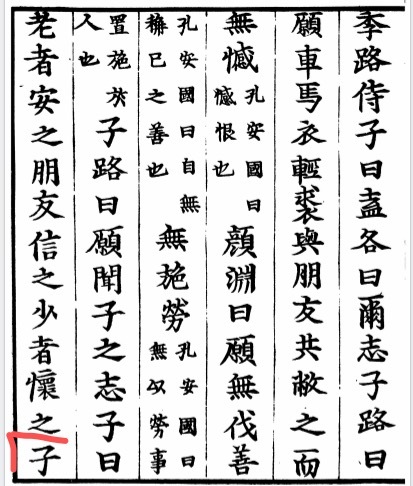 季路侍子曰盍各曰爾志子路曰
願車馬衣輕裘與朋友共敝之而
無憾孔安國曰憾恨也顏淵曰願無伐善
孔安國曰自無稱已之善也無施勞孔安國曰無以勞事
置施於人也子路曰願聞子之志子曰
老者安之朋友信之少者懷之子